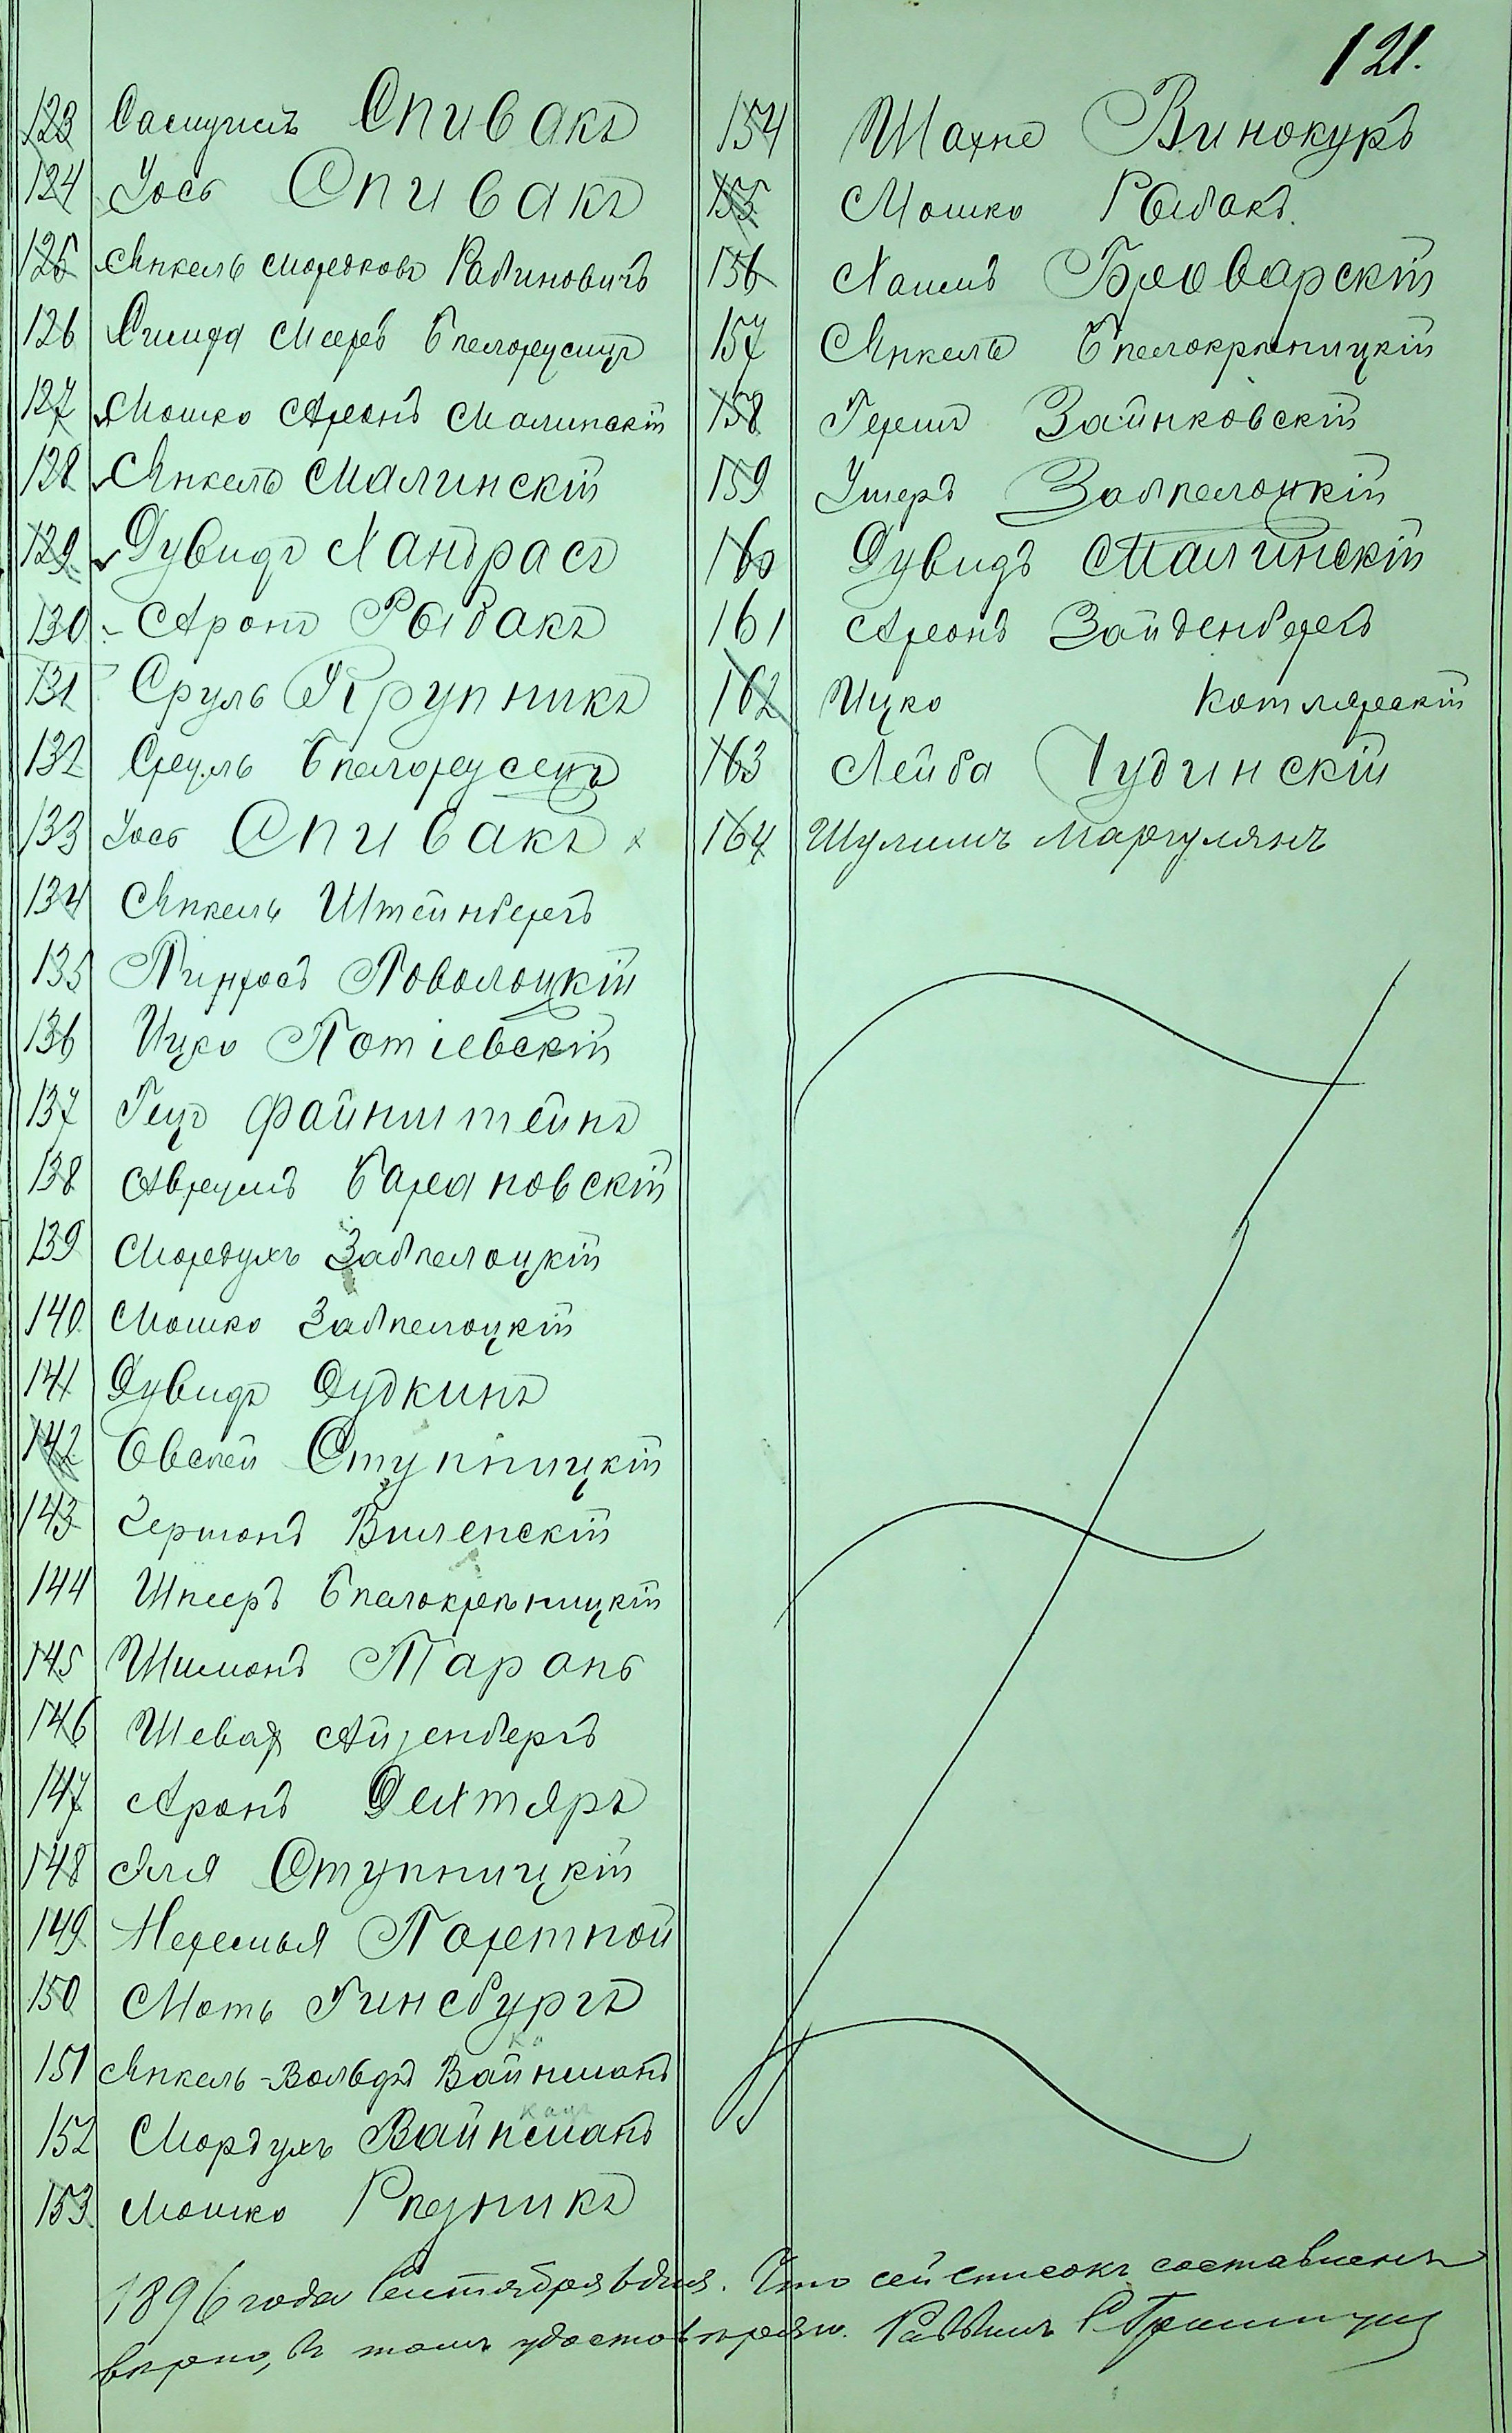 121.
123 Самуилъ Спивакъ
124 Іось Спивакъ
125 Янкель Мордковъ Рабиновичъ
126 Симха Меерв Бѣлорусецъ
127 Мошко Аронъ Малинскій
128 Янкель Малинскій
129 Дувидъ Хандрасъ
130 Аронъ Рыбакъ
131 Сруль Крупникъ
132 Сруль Бѣлорусецъ
133 Іось Спивакъ
134 Янкель Штейнбергъ
135 Пинхосъ Поволоцкій
136 Ицко Потіевскій
137 Гецъ Файнштейнъ
138 Аврумъ Барановскій
139 Мордухъ Забѣлоцкій
140 Мошко Забѣлоцкій
141 Дувидъ Дудкинъ
142 Овсѣй Ступницкій
143 Гершонъ Виленскій
144 Шнееръ Бѣлокрѣницкій
145 Шимонъ Таранъ
146 Шевах Айзенбергъ
147 Аронъ Дехтяръ
148 Эля Ступницкій
149 Нехемья Портной
150 Моть Гинсбургъ
151 Янкель-Вольфъ Вайнманъ
152 Мордухъ Вайнманъ
153 Мошко Рѣзникъ
154 Шахно Винокуръ
155 Мошко Рыбакъ
156 Хаимъ Броварскій
157 Янкель Бѣлокрыницкій
158 Гершъ Зайнковскій
159 Ушеръ Забѣлоцкій
160 Дувидъ Малинскій
161 Аронъ Зайденбергъ
162 Ицко Котлярскій
163 Лейба Чудинскій
164 Шулимъ Маргулянъ
1896 года Сентября 6 дня. Что сей списокъ составленъ
вѣрно, въ томъ удостовѣряю. Раввинъ